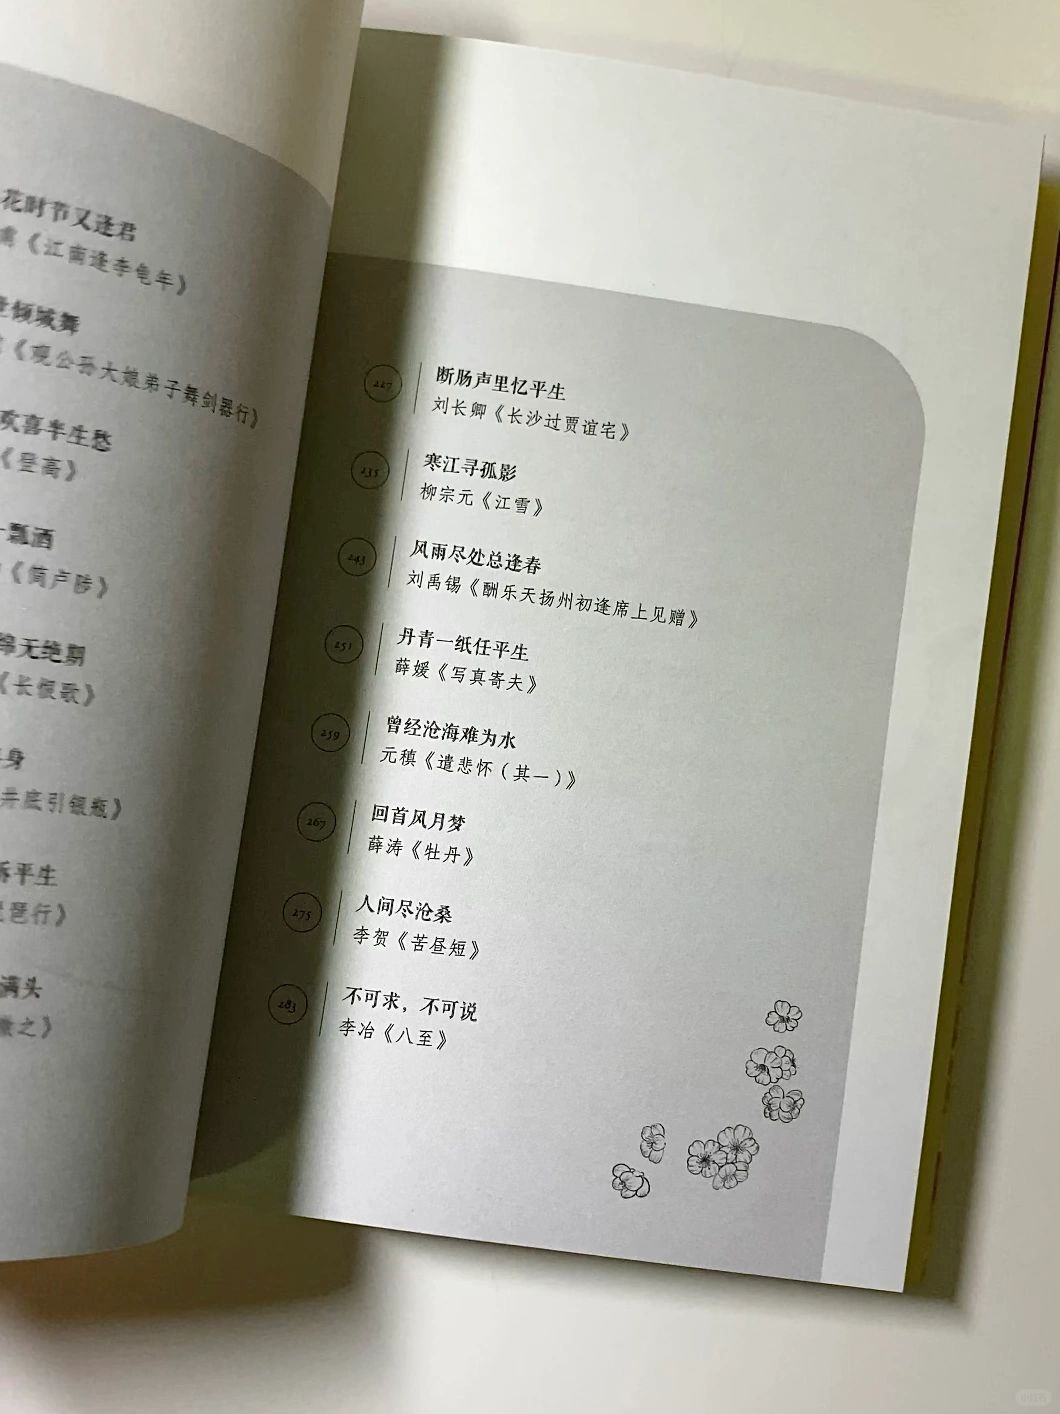 花时节又逢君
《江南逢李龟年》
倾城舞
《观公孙大娘弟子舞剑器行》
欢喜半生愁
《登高》
一瓢酒
《简卢陟》
绵无绝期
《长恨歌》
身
井底引银瓶》
诉平生
琵琶行》
满头
微之》
227
断肠声里忆平生
刘长卿《长沙过贾谊宅》
235
寒江寻孤影
柳宗元《江雪》
243
风雨尽处总逢春
刘禹锡《酬乐天扬州初逢席上见赠》
251
丹青一纸任平生
薛媛《写真寄夫》
259
曾经沧海难为水
元稹《遣悲怀（其一）》
267
回首风月梦
薛涛《牡丹》
275
人间尽沧桑
李贺《苦昼短》
283
不可求，不可说
李冶《八至》